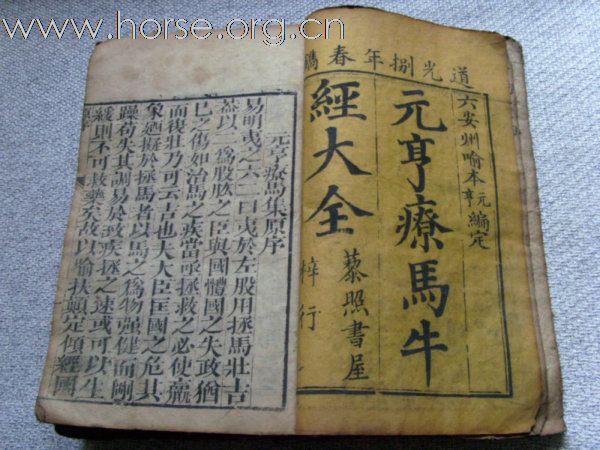 www.horse.org.cn
道光捌年春鐫
六安州喻本元亨編定
元亨療馬牛
經大全
藜照書屋
梓行
元亨療馬集原序
易明夷之六二曰夷於左股用拯馬壯吉
葢以二爲股肱之臣與國體國之失政猶
已之傷如治馬之疾當呼拯救之必使羸
而復壯乃可云吉也夫大臣匡國之危其
象廼擬於拯馬者以馬之爲物强健而剛
躁苟失其調易於致疾拯之速或可以生
緩則不可救藥矣故以喻扶顛定傾經國